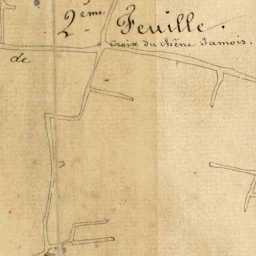 2ème Feuille.
Croix du Chêne Jamois.
de